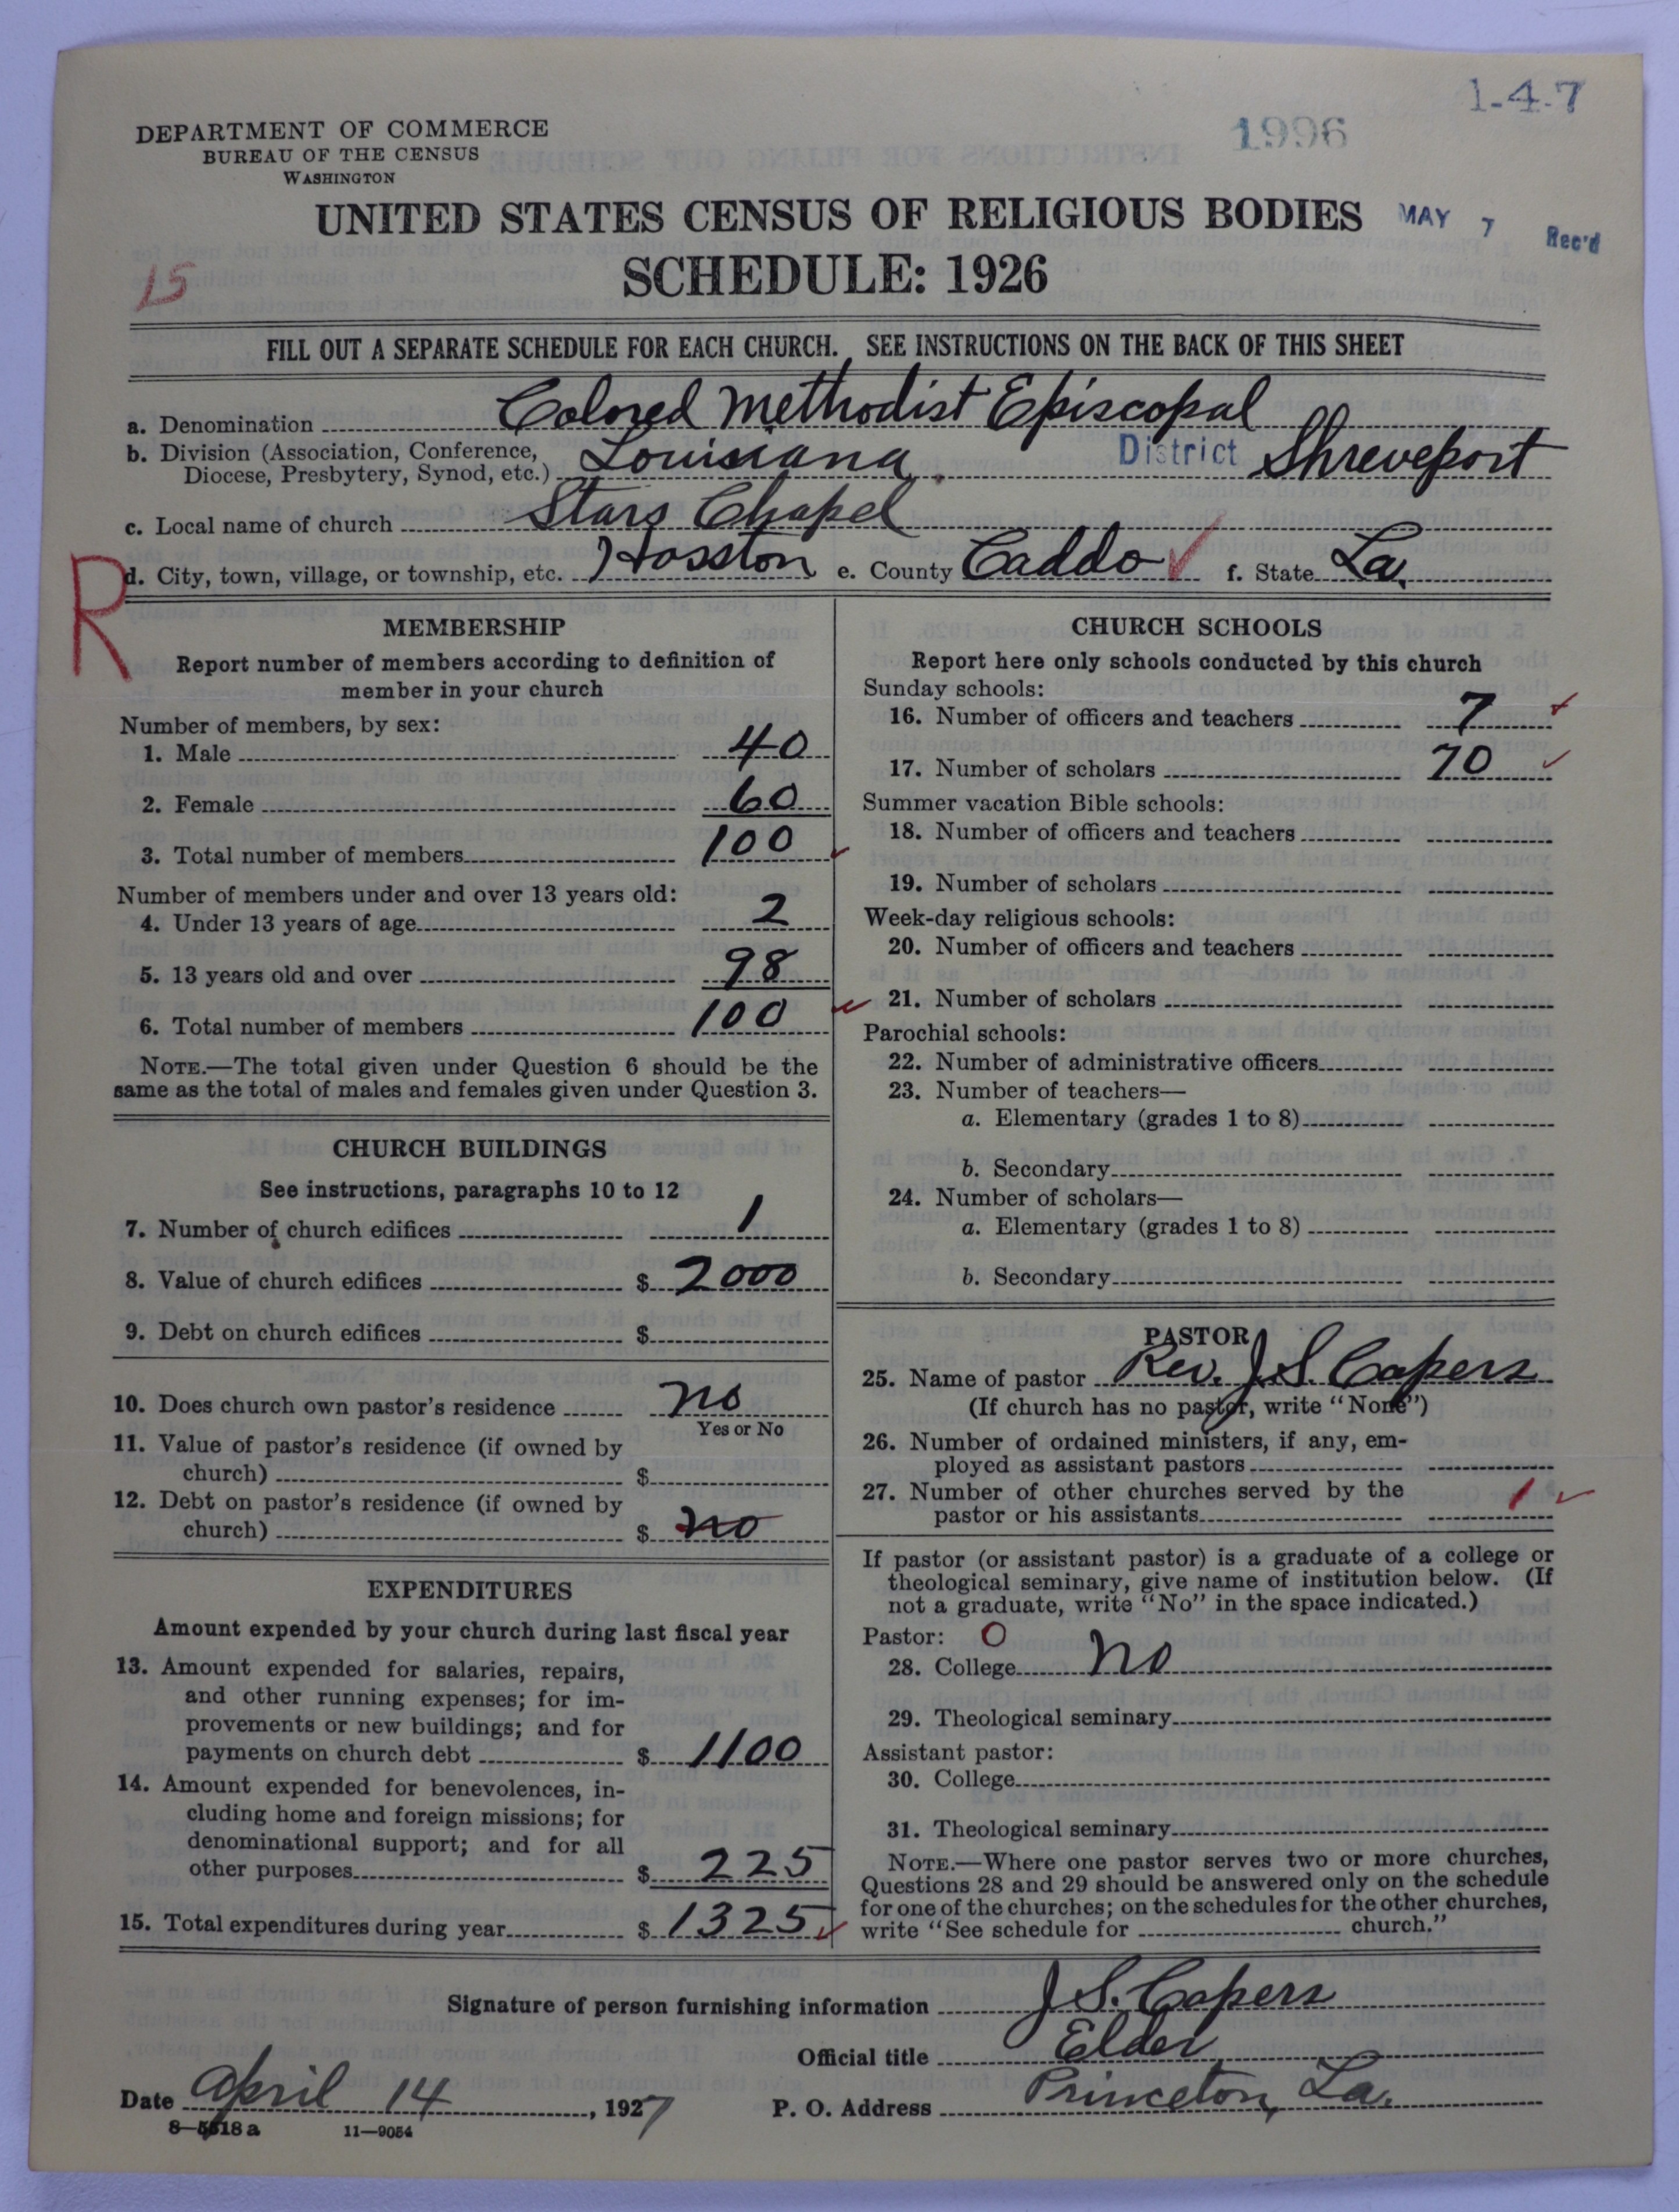 1-4-7
1996
DEPARTMENT OF COMMERCE
BUREAU OF THE CENSUS
WASHINGTON
UNITED STATES CENSUS OF RELIGIOUS BODIES
MAY 7 Rec'd
SCHEDULE: 1926
15
FILL OUT A SEPARATE SCHEDULE FOR EACH CHURCH. SEE INSTRUCTIONS ON THE BACK OF THIS SHEET
a. Denomination Colored Methodist Episcopal
b. Division (Association, Conference, Diocese, Presbytery, Synod, etc.) Louisiana District Shreveport
c. Local name of church Stars Chapel
R
d. City, town, village, or township, etc. Hosston e. County Caddo ✓ f. State La.
MEMBERSHIP
Report number of members according to definition of
member in your church
Number of members, by sex:
1. Male 40
2. Female 60
3. Total number of members 100 ✓
Number of members under and over 13 years old:
4. Under 13 years of age 2
5. 13 years old and over 98
6. Total number of members 100 ✓
NOTE.—The total given under Question 6 should be the
same as the total of males and females given under Question 3.
CHURCH BUILDINGS
See instructions, paragraphs 10 to 12
7. Number of church edifices 1
8. Value of church edifices $ 2000
9. Debt on church edifices $
10. Does church own pastor's residence no
Yes or No
11. Value of pastor's residence (if owned by
church) $
12. Debt on pastor's residence (if owned by
church) $ no
EXPENDITURES
Amount expended by your church during last fiscal year
13. Amount expended for salaries, repairs,
and other running expenses; for im-
provements or new buildings; and for
payments on church debt $ 1100
14. Amount expended for benevolences, in-
cluding home and foreign missions; for
denominational support; and for all
other purposes $ 225
15. Total expenditures during year $ 1325 ✓
CHURCH SCHOOLS
Report here only schools conducted by this church
Sunday schools:
16. Number of officers and teachers 7 ✓
17. Number of scholars 70 ✓
Summer vacation Bible schools:
18. Number of officers and teachers
19. Number of scholars
Week-day religious schools:
20. Number of officers and teachers
21. Number of scholars
Parochial schools:
22. Number of administrative officers
23. Number of teachers—
a. Elementary (grades 1 to 8)
b. Secondary
24. Number of scholars—
a. Elementary (grades 1 to 8)
b. Secondary
PASTOR
25. Name of pastor Rev. J. S. Capers
(If church has no pastor, write "None")
26. Number of ordained ministers, if any, em-
ployed as assistant pastors
27. Number of other churches served by the
pastor or his assistants 1 ✓
If pastor (or assistant pastor) is a graduate of a college or
theological seminary, give name of institution below. (If
not a graduate, write "No" in the space indicated.)
Pastor: O
28. College no
29. Theological seminary
Assistant pastor:
30. College
31. Theological seminary
NOTE.—Where one pastor serves two or more churches,
Questions 28 and 29 should be answered only on the schedule
for one of the churches; on the schedules for the other churches,
write "See schedule for church."
Signature of person furnishing information J. S. Capers
Official title Elder
Date April 14, 1927 P. O. Address Princeton, La.
8-5518a 11-9054